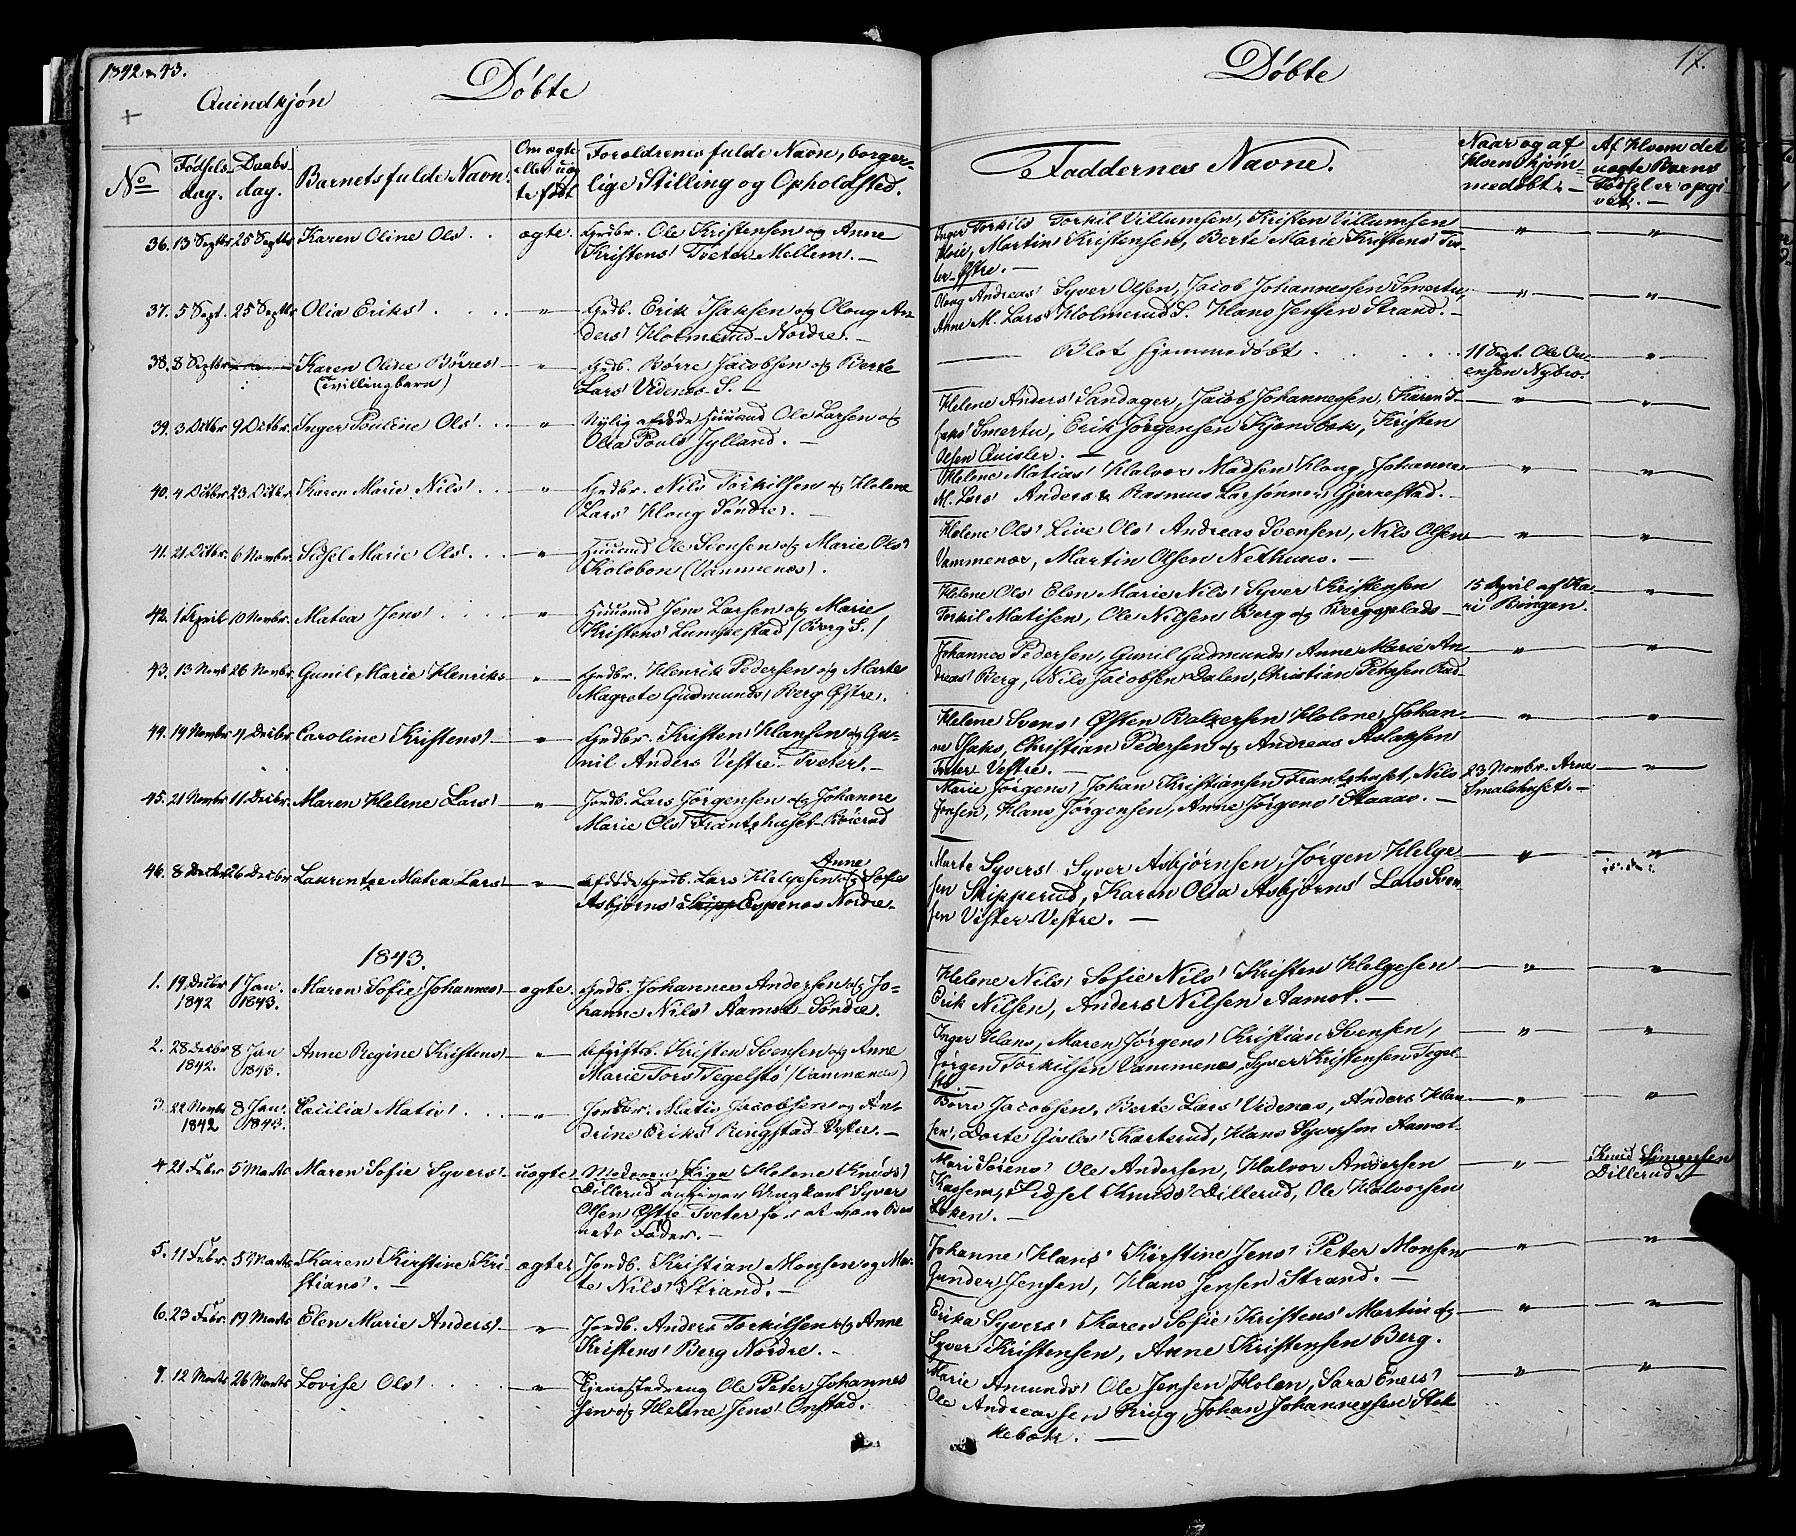 1842 & 43.
Døbte
Døbte
17.
Qvindkjøn
No
Fødsels-
dag.
Daabs-
dag.
Barnets fulde Navn.
Om ægte
eller uæg
te født
Forældrenes fulde Navn, borger-
lige Stilling og Opholdsted.
Faddernes Navne.
Naar og af
hvem hjem-
medøbt. —
Af hvem det
uægte Barns
Fødsel er opgi
vet. —
36. 13 Septbr 25 Septbr Karen Oline Ols. . . ægte. Grdbr. Ole Kristensen og Anne
Kristens' Tveter Mellem. —
Inger Torkils' Torkil Villumsen, Kristen Villumsen
Martin Kristensen, Berte Marie Kristens' Tve-
ter Østre. —
37. 5 Sept. 25 Septbr Olia Eriks' . . . — " — Grdb. Erik Isaksen og Oloug An-
ders' Holmerud Nordre. —
Oloug Andreas' Syver Olsen, Jacob Johannessen Smertu,
Anne M. Lars' Holmerud S. Hans Jensen Strand. —
38. 8 Septbr Karen Oline Børres' — " — Grdb. Børre Jacobsen og Berte
(Tvillingbarn) Lars' Videnes S. —
Blot hjemmedøbt . . . 11 Sept. Ole Ou-
ensen Nybro. "
39. 3 Octbr 9 Octbr. Inger Pouline Ols' . . — " — Nylig afdøde Huusmd Ole Larsen og
Olia Pouls' Jylland. —
Helene Anders' Sandager, Jacob Johannessen, Karen I-
saks' Smertu, Erik Jørgensen Kjensbek, Kristen
Olsen Quisler. —
40. 4 Octbr 23 Octbr. Karen Marie Nils' . . — " — Grdbr. Nils Torkilsen og Helene
Lars' Houg Søndre. —
Helene Matias' Halvor Madsen Houg, Johanne
M. Lars' Anders & Rasmus Larsønner Gjerrestad. —
41. 21 Octbr. 6 Novbr. Sidsel Marie Ols. . . — " — Huusmd Ole Svensen og Marie Ols'
Kolobon (Vammenæs).
Helene Ols' Live Ols' Andreas Svensen, Nils Olsen
Vammenæs, Martin Olsen Nethuus. —
42. 1 April 10 Novbr. Matea Jens' . . . — " — Huusmd Jens Larsen og Marie
Kristens' Lumpestad (Berg S.)
Helene Ols' Elen Marie Nils' Syver Kristensen
Torkil Matisen, Ole Nilsen Berg og Bergsplads — 15 April af Ka-
ri Ringen.
43. 13 Novb 26 Novbr. Gunil Marie Henriks — " — Grdbr. Henrik Pedersen og Marte
Magrete Gudmunds' Berg Østre.
Johannes Pedersen, Gunil Gudmunds' Anne Marie An-
dreas' Berg, Nils Jacobsen Dalen, Christian Petersen
44. 19 Novbr 4 Decbr Caroline Kristens' — " — Grdbr. Kristen Hansen og Gu-
nil Anders' Vestre Tveter. —
Helene Svens' Østen Baltzersen Holone, Johan-
ne Isaks, Christian Pedersen og Andreas Aslaksen
Tveter Vestre. —
45. 21 Novbr 11 Decbr. Maren Helene Lars' — " — Jordb. Lars Jørgensen og Johanne
Marie Ols' Frantzhuset Røierud
Marie Jørgens' Johan Kristiansen Frantzhuset, Nils
Jensen, Hans Jørgensen, Anne Jørgens' Haaaas. — 23 Novbr. Arne
Smalshuset. —
46. 8 Decbr 26 Decbr. Laurentze Matea Lars' — " — afdøde Grdb. Lars Helgesen og Anne Sofie
Asbjørns' Espenæs Nordre —
Marte Syvers' Syver Asbjørnsen, Jørgen Helge-
sen Skipperud, Karen Olia Asbjørns' Lars Sven-
sen Vister Vestre. —
1843.
1. 19 Decbr 1 Jan. Maren Sofie Johannes' — ægte. Grdb. Johannes Andersen og Jo-
1842 1843. hanne Nils' Aamot Søndre.
Helene Nils' Sofie Nils' Kristen Helgesen
Erik Nilsen, Anders Nilsen Aamot. —
2. 28 Decbr 8 Jan Anne Regine Kristens' — " — Afgiftsb. Kristen Svensen og Anne
1842. 1843. Marie Tors' Tegelstø (Vammenæs)
Inger Hans, Maren Jørgens' Kristian Svensen,
Jørgen Torkilsen Vammenæs, Syver Kristensen Tegel-
stø —
3. 22 Novbr 8 Jan. Cecilia Matis' . . . — " — Jordbr. Matis Jacobsen og An-
1842 1843. drine Eriks' Ringstad Vestre. —
Børre Jacobsen, Berte Lars' Videnæs, Anders Han-
sen, Dorte Gisles' Karterud, Hans Syversen Aamot
4. 21 Febr 5 Marts Maren Sofie Syvers' — uægte Moderen Pige Helene Knuds'
Dillerud angiver Ungkarl Syver
Olsen Østre Tveter for at være Bar-
nets Fader. —
Mari Sørens' Ole Andersen, Halvor Andersen
Kassem, Sidsel Knuds' Dillerud, Ole Halvorsen
Løken. —
Knud Simensen
Dillerud. —
5. 11 Febr. 5 Marts Karen Kirstine Kri- ægte Jordb. Kristian Monsen og Mar-
stians'. — te Nils' Strand. —
Johanne Hans' Kirstine Jens' Peter Monsen
Gunder Jensen, Hans Jensen Strand. —
6. 23 Febr. 19 Marts Elen Marie Anders' — " — Jordb. Anders Torkilsen og Anne
Kristens' Berg Nordre. —
Erika Syvers' Karen Sofie Kristens' Martin og
Syver Kristensen, Anne Kristensen Berg.
7. 12 Marts 26 Marts Lovise Ols' . . . — " — Tjenestedreng Ole Peter Johannes
sen og Helene Jens' Onstad.
Marie Amunds' Ole Jensen Holen, Sara Eners'
Ole Andreassen Krug, Johan Johannessen Stok
kebæk. —